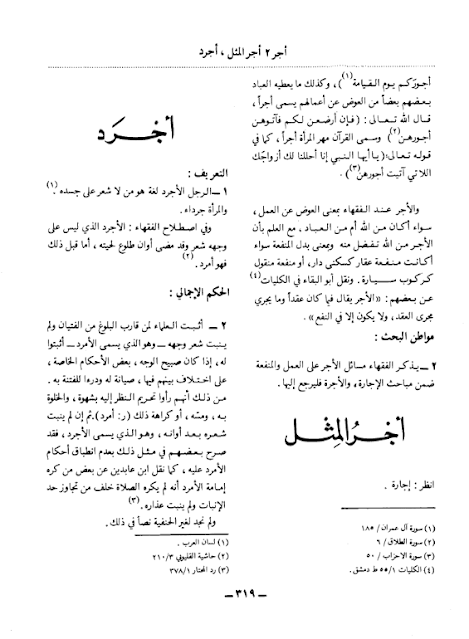 أجر ٢ أجر المثل ، أجرد
أجوركم يوم القيامة(١)) ، وكذلك ما يعطيه العباد
بعضهم بعضاً من العوض عن أعمالهم يسمى أجراً ،
قال الله تعالى : (فإن أرضعن لكم فآتوهن
أجورهن(٢)) وسمى القرآن مهر المرأة أجراً ، كما في
قوله تعالى : (يا أيها النبي إنا أحللنا لك أزواجك
اللاتي آتيت أجورهن(٣)) .
والأجر عند الفقهاء بمعنى العوض عن العمل ،
سواء أكان من الله أم من العباد ، مع العلم بأن
الأجر من الله تفضل منه وبمعنى بدل المنفعة سواء
أكانت منفعة عقار كسكنى دار ، أو منفعة منقول
كركوب سيارة . ونقل أبو البقاء في الكليات(٤)
عن بعضهم : «الأجر يقال فيما كان عقداً وما يجري
مجرى العقد ، ولا يكون إلا في النفع» .
مواطن البحث :
٢ — يذكر الفقهاء مسائل الأجر على العمل والمنفعة
ضمن مباحث الإجارة ، والأجرة فليرجع إليها .
أجر المثل
انظر : إجارة .
(١) سورة آل عمران / ١٨٥
(٢) سورة الطلاق / ٦
(٣) سورة الاحزاب / ٥٠
(٤) الكليات ٥٥/١ ط دمشق .
أجرد
التعريف :
١ — الرجل الأجرد لغة هو من لا شعر على جسده .(١)
والمرأة جرداء .
وفي اصطلاح الفقهاء : الأجرد الذي ليس على
وجهه شعر وقد مضى أوان طلوع لحيته ، أما قبل ذلك
فهو أمرد .(٢)
الحكم الإجمالي :
٢ — أثبت العلماء لمن قارب البلوغ من الفتيان ولم
ينبت شعر وجهه — وهو الذي يسمى الأمرد — أثبتوا
له ، إذا كان صبيح الوجه ، بعض الأحكام الخاصة ،
على اختلاف بينهم فيها ، صيانة له ودرءا للفتنة به .
من ذلك أنهم رأوا تحريم النظر إليه بشهوة ، والخلوة
به ، ومسّه ، أو كراهة ذلك (ر : أمرد) . ثم إن لم ينبت
شعره بعد أوانه ، وهو الذي يسمى الأجرد ، فقد
صرح بعضهم في مثل ذلك بعدم انطباق أحكام
الأمرد عليه ، كما نقل ابن عابدين عن بعض من كره
إمامة الأمرد أنه لم يكره الصلاة خلف من تجاوز حد
الإنبات ولم ينبت عذاره .(٣)
ولم نجد لغير الحنفية نصاً في ذلك .
(١) لسان العرب .
(٢) حاشية القليوبي ٢١٠/٣
(٣) رد المحتار ٣٧٨/١
— ٣١٩ —